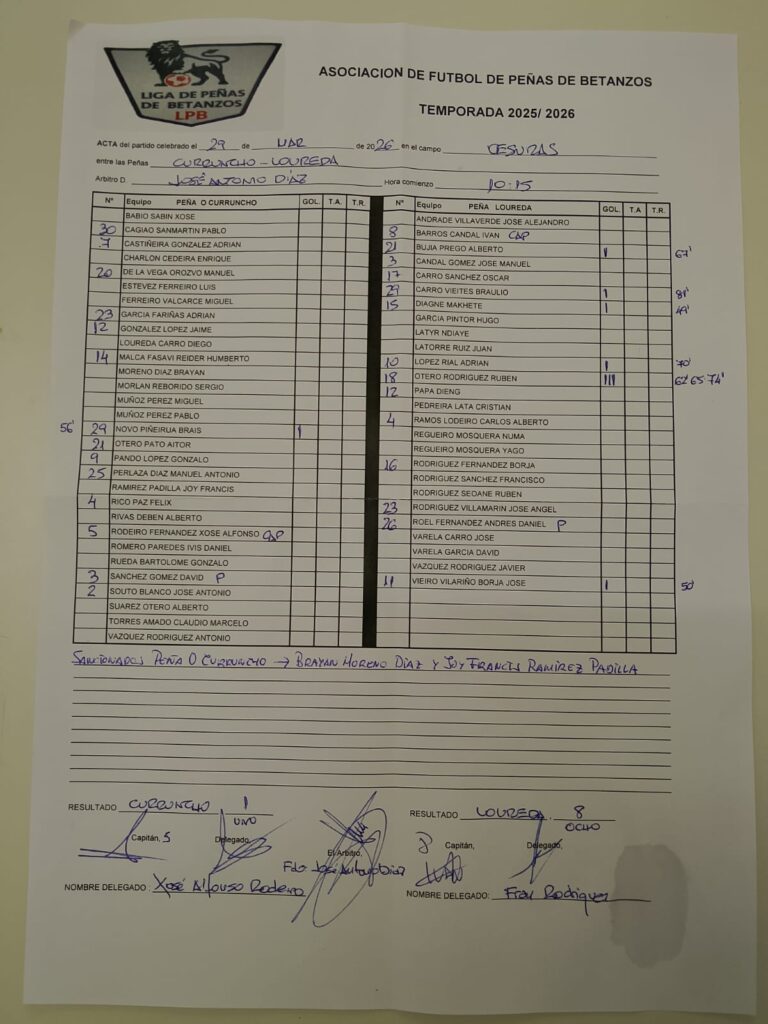 LIGA DE PEÑAS
DE BETANZOS
LPB
ASOCIACION DE FUTBOL DE PEÑAS DE BETANZOS
TEMPORADA 2025/ 2026
ACTA del partido celebrado el 29 de MAR de 2026 en el campo CESURAS
entre las Peñas CURRUNCHO - LOUREDA
Arbitro D. JOSÉ ANTONIO DÍAZ Hora comienzo 10:15
Nº Equipo PEÑA O CURRUNCHO GOL. T.A. T.R.
BABIO SABIN XOSE
30 CAGIAO SANMARTIN PABLO
7 CASTIÑEIRA GONZALEZ ADRIAN
CHARLON CEDEIRA ENRIQUE
20 DE LA VEGA OROZVO MANUEL
ESTEVEZ FERREIRO LUIS
FERREIRO VALCARCE MIGUEL
23 GARCIA FARIÑAS ADRIAN
12 GONZALEZ LOPEZ JAIME
LOUREDA CARRO DIEGO
14 MALCA FASAVI REIDER HUMBERTO
MORENO DIAZ BRAYAN
MORLAN REBORIDO SERGIO
MUÑOZ PEREZ MIGUEL
MUÑOZ PEREZ PABLO
56' 29 NOVO PIÑEIRUA BRAIS I
21 OTERO PATO AITOR
9 PANDO LOPEZ GONZALO
25 PERLAZA DIAZ MANUEL ANTONIO
RAMIREZ PADILLA JOY FRANCIS
4 RICO PAZ FELIX
RIVAS DEBEN ALBERTO
5 RODEIRO FERNANDEZ XOSE ALFONSO CAP
ROMERO PAREDES IVIS DANIEL
RUEDA BARTOLOME GONZALO
3 SANCHEZ GOMEZ DAVID P
2 SOUTO BLANCO JOSE ANTONIO
SUAREZ OTERO ALBERTO
TORRES AMADO CLAUDIO MARCELO
VAZQUEZ RODRIGUEZ ANTONIO
Nº Equipo PEÑA LOUREDA GOL. T.A T.R.
ANDRADE VILLAVERDE JOSE ALEJANDRO
8 BARROS CANDAL IVAN CAP
21 BUJIA PREGO ALBERTO I 67'
3 CANDAL GOMEZ JOSE MANUEL
17 CARRO SANCHEZ OSCAR
29 CARRO VIEITES BRAULIO I 81'
15 DIAGNE MAKHETE I 49'
GARCIA PINTOR HUGO
LATYR NDIAYE
LATORRE RUIZ JUAN
10 LOPEZ RIAL ADRIAN I 70'
18 OTERO RODRIGUEZ RUBEN III 62' 65' 74'
12 PAPA DIENG
PEDREIRA LATA CRISTIAN
4 RAMOS LODEIRO CARLOS ALBERTO
REGUEIRO MOSQUERA NUMA
REGUEIRO MOSQUERA YAGO
16 RODRIGUEZ FERNANDEZ BORJA
RODRIGUEZ SANCHEZ FRANCISCO
RODRIGUEZ SEOANE RUBEN
23 RODRIGUEZ VILLAMARIN JOSE ANGEL
26 ROEL FERNANDEZ ANDRES DANIEL P
VARELA CARRO JOSE
VARELA GARCIA DAVID
VAZQUEZ RODRIGUEZ JAVIER
11 VIEIRO VILARIÑO BORJA JOSE I 50'
SANCIONADOS PEÑA O CURRUNCHO → BRAYAN MORENO DÍAZ Y JOY FRANCIS RAMÍREZ PADILLA
RESULTADO CURRUNCHO 1
UNO
RESULTADO LOUREDA. 8
OCHO
Capitán, 5 Delegado, El Arbitro, 8 Capitán, Delegado,
Fdo José Antonio Díaz IVAN
NOMBRE DELEGADO: Xosé Alfonso Rodeiro
NOMBRE DELEGADO: Fran Rodriguez